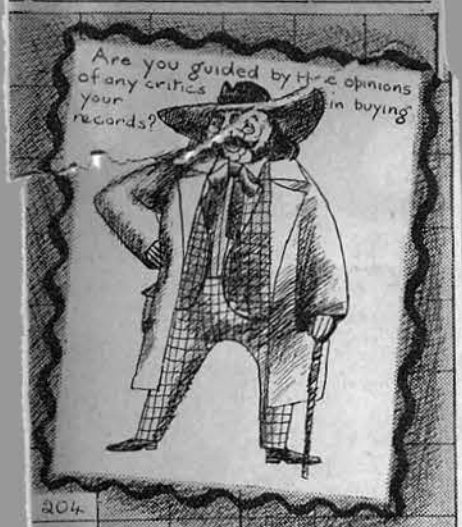 Are you guided by the opinions
of any critics in buying
your
records?
204